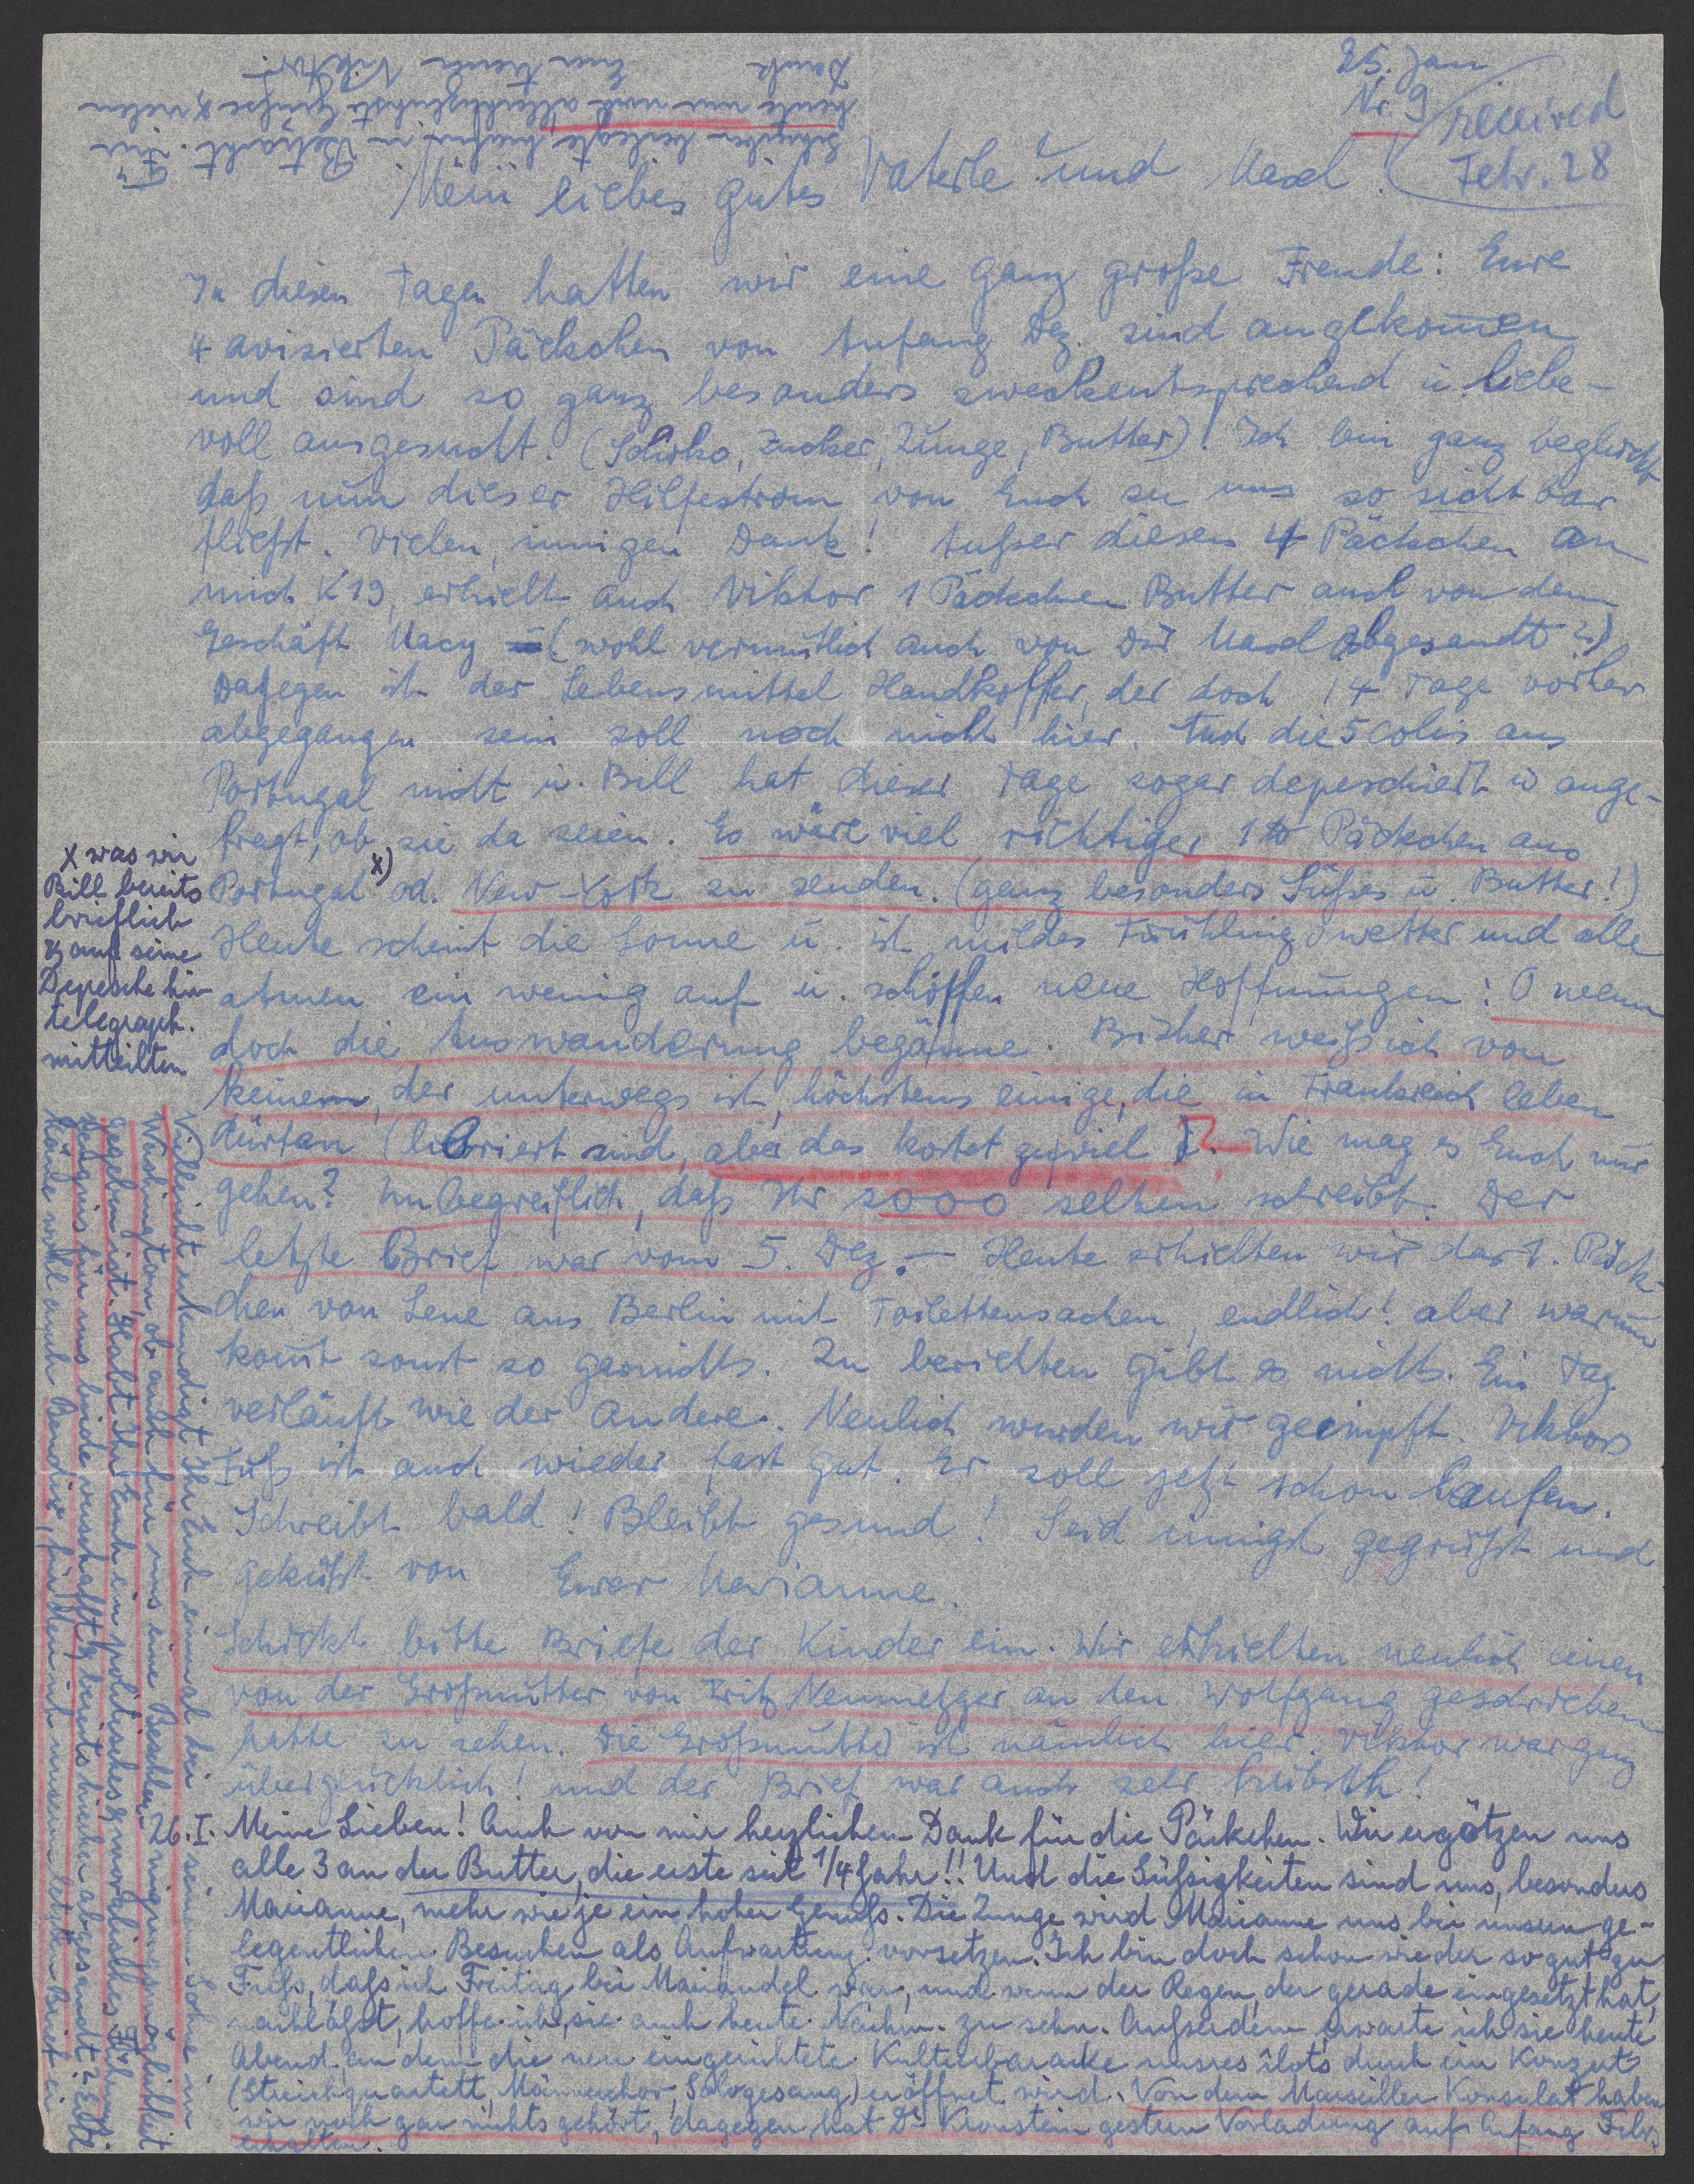 25. Jan.
Nr. 9
received
Febr. 28
Mein liebes gutes Vaterle und Masel!
In diesen Tagen hatten wir eine ganz große Freude: Eure
4 avisierten Päckchen von Anfang Dez. sind angekommen
und sind so ganz besonders zweckentsprechend u. liebe-
voll ausgesucht. (Schoko, Zucker, Zunge, Butter)! Ich bin ganz beglückt
daß nun dieser Hilfestrom von Euch zu uns so sichtbar
fließt. Vielen, innigen Dank! Außer diesen 4 Päckchen an
mich K 19, erhielt auch Viktor 1 Päckchen Butter auch von dem
Geschäft Macy (wohl vermutlich auch von Dir Masel abgesandt?)
Dagegen ist der Lebensmittel Handkoffer, der doch 14 Tage vorher
abgegangen sein soll noch nicht hier. Auch die 5 Colis aus
Portugal nicht u. Bill hat dieser Tage sogar depeschiert u ange-
fragt, ob sie da seien. Es wäre viel richtiger 1 Päckchen aus
Portugal x) od. New-York zu senden. (ganz besonders Süßes u. Butter!)
Heute scheint die Sonne u. ist mildes Frühlingswetter und alle
atmen ein wenig auf u. schöpfen neue Hoffnungen: O wenn
doch die Auswanderung begänne. Bisher weiß ich von
keinem, der unterwegs ist, höchstens einige, die in Frankreich leben
dürfen (liberiert sind, aber das kostet zuviel). Wie mag es Euch nur
gehen? Unbegreiflich, daß Ihr sooo selten schreibt. Der
letzte Brief war vom 5. Dez. – Heute erhielten wir das 1. Päck-
chen von Lene aus Berlin mit Toilettensachen, endlich! aber warum
kommt sonst so garnichts. Zu berichten gibt es nichts. Ein Tag
verläuft wie der andere. Neulich wurden wir geimpft. Viktors
Fuß ist auch wieder fast gut. Er soll jetzt schon laufen.
Schreibt bald! Bleibt gesund! Seid innigst gegrüßt und
geküßt von Eurer Marianne.
Schickt bitte Briefe der Kinder ein. Wir erhielten neulich einen
von der Großmutter von Fritz Neumetzger an den Wolfgang geschrieben
hatte zu sehen. Die Großmutter ist nämlich hier. Viktor war ganz
überglücklich! und der Brief war auch sehr hübsch!
x was wir
Bill bereits
brieflich
& auf seine
Depesche hin
telegraph.
mitteilten
26. I. Meine Lieben! Auch von mir herzlichen Dank für die Päckchen. Wir ergötzen uns
alle 3 an der Butter, die erste seit 1/4 Jahr!! Und die Süßigkeiten sind uns, besonders
Marianne, mehr wie je ein hoher Genuß. Die Zunge wird Marianne uns bei unsern ge-
legentlichen Besuchen als Aufwartung vorsetzen. Ich bin doch schon wieder so gut zu
Fuß, daß ich Freitag bei Mariandel war, und wenn der Regen, der gerade eingesetzt hat,
nachläßt, hoffe ich, sie auch heute Nachm. zu sehn. Außerdem erwarte ich sie heute
Abend, an dem die neu eingerichtete Kulturbaracke unsres îlots durch ein Konzert
(Streichquartett, Männerchor, Sologesang) eröffnet wird. Von dem Marseiller Konsulat haben
wir noch gar nichts gehört, dagegen hat Dr. Kronstein gestern Vorladung auf Anfang Febr.
erhalten.
Vielleicht erkundigt Ihr Euch einmal bei seinem Sohne in
Washington, ob auch für uns eine Beschleunigungsmöglichkeit
gegeben ist. Habt Ihr Euch ein politisches & moralisches Führungs-
zeugnis für uns beide verschafft & bereits hierher abgesandt? Evtl
käme wohl auch Bandix, für den ich unserm letzten Brief ein
Schreiben beilegte hierfür in Betracht. Für
heute nur noch allerherzlichste Grüße & vielen
Dank Euer treuer Viktor.